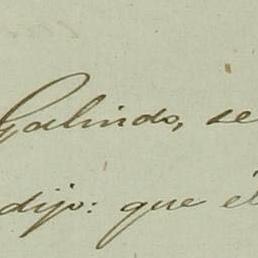 Galindo, se
dijo: que él